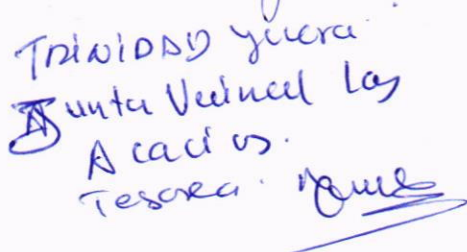 TRINIDAD
Junta Vecinal Las
Acacias.
Tesorera.